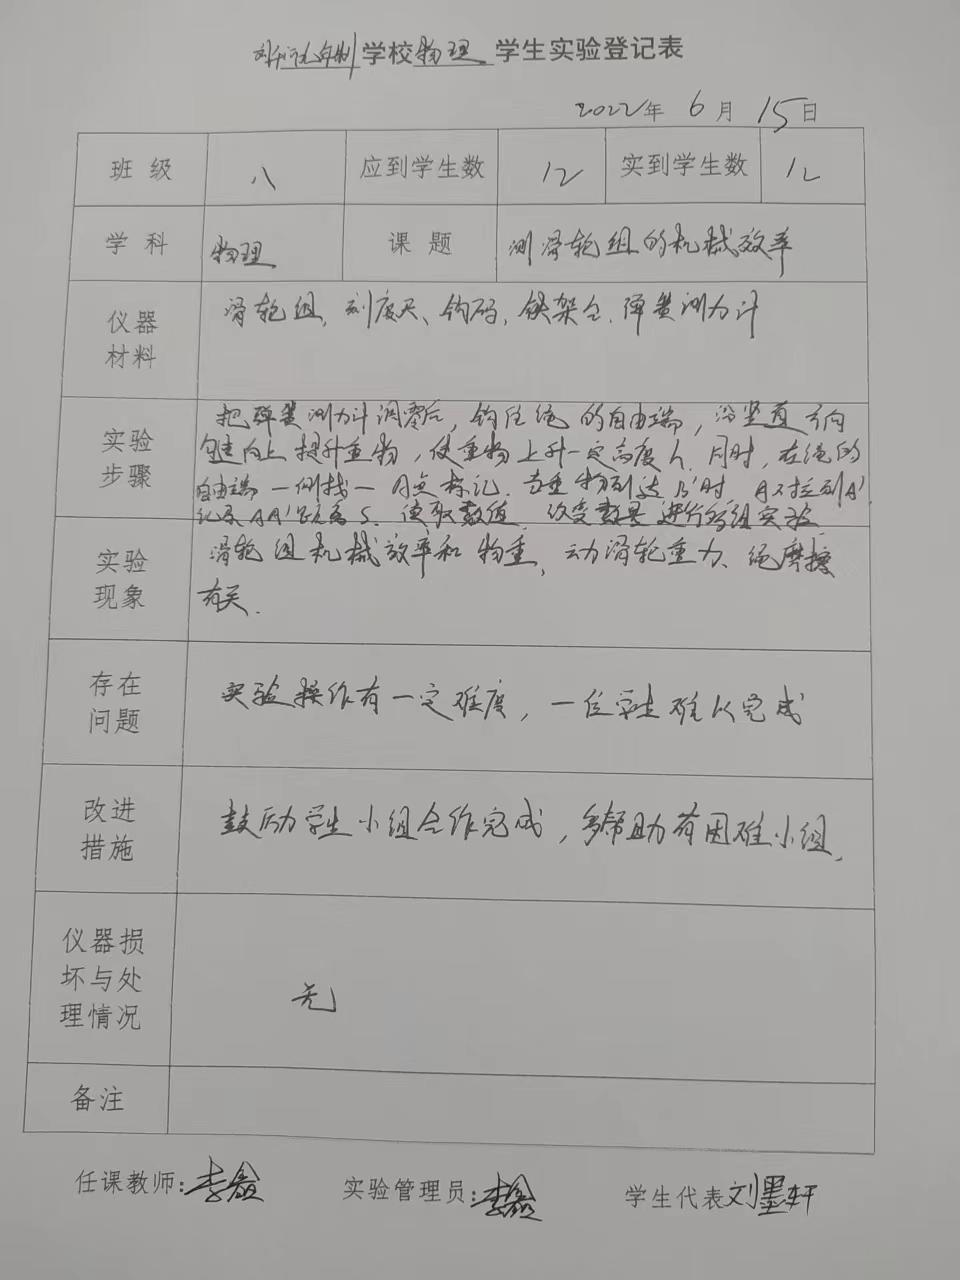 学校物理学生实验登记表
2022年 6月 15日
班级 八 应到学生数 12 实到学生数 12
学科 物理 课题 测滑轮组的机械效率
仪器材料 滑轮组、刻度尺、钩码、铁架台、弹簧测力计
实验步骤 把弹簧测力计调零后，钩住绳的自由端，沿竖直方向
向上提升重物，使重物上升一定高度h，同时，在绳的
自由端一侧找一A点标记，当重物到达B'时，A又拉到A'
记录AA'距离S，读取数值，改变数量进行多组实验
实验现象 滑轮组机械效率和物重、动滑轮重力、绳摩擦
有关.
存在问题 实验操作有一定难度，一位学生难以完成
改进措施 鼓励学生小组合作完成，多帮助有困难小组.
仪器损坏与处理情况 无
备注
任课教师:李鑫 实验管理员:李鑫 学生代表刘墨轩